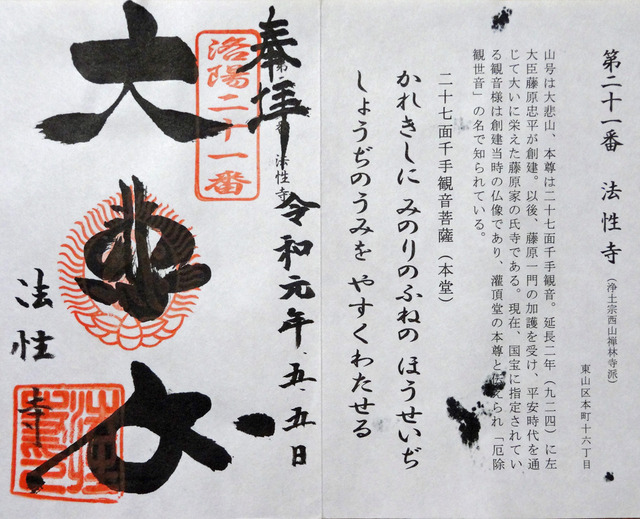 第二十一番 法性寺 (浄土宗西山禅林寺派)
東山区本町十六丁目
山号は大悲山、本尊は二十七面千手観音。延長二年(九二四)に左
大臣藤原忠平が創建。以後、藤原一門の加護を受け、平安時代を通
じて大いに栄えた藤原家の氏寺である。現在、国宝に指定されてい
る観音様は創建当時の仏像であり、灌頂堂の本尊と伝えられ「厄除
観世音」の名で知られている。
二十七面千手観音菩薩(本堂)
かれきしに みのりのふねの ほうせいぢ
しょうぢのうみを やすくわたせる
奉拝
洛陽二十一番
法性寺
令和元年五.五日
大悲
法性寺